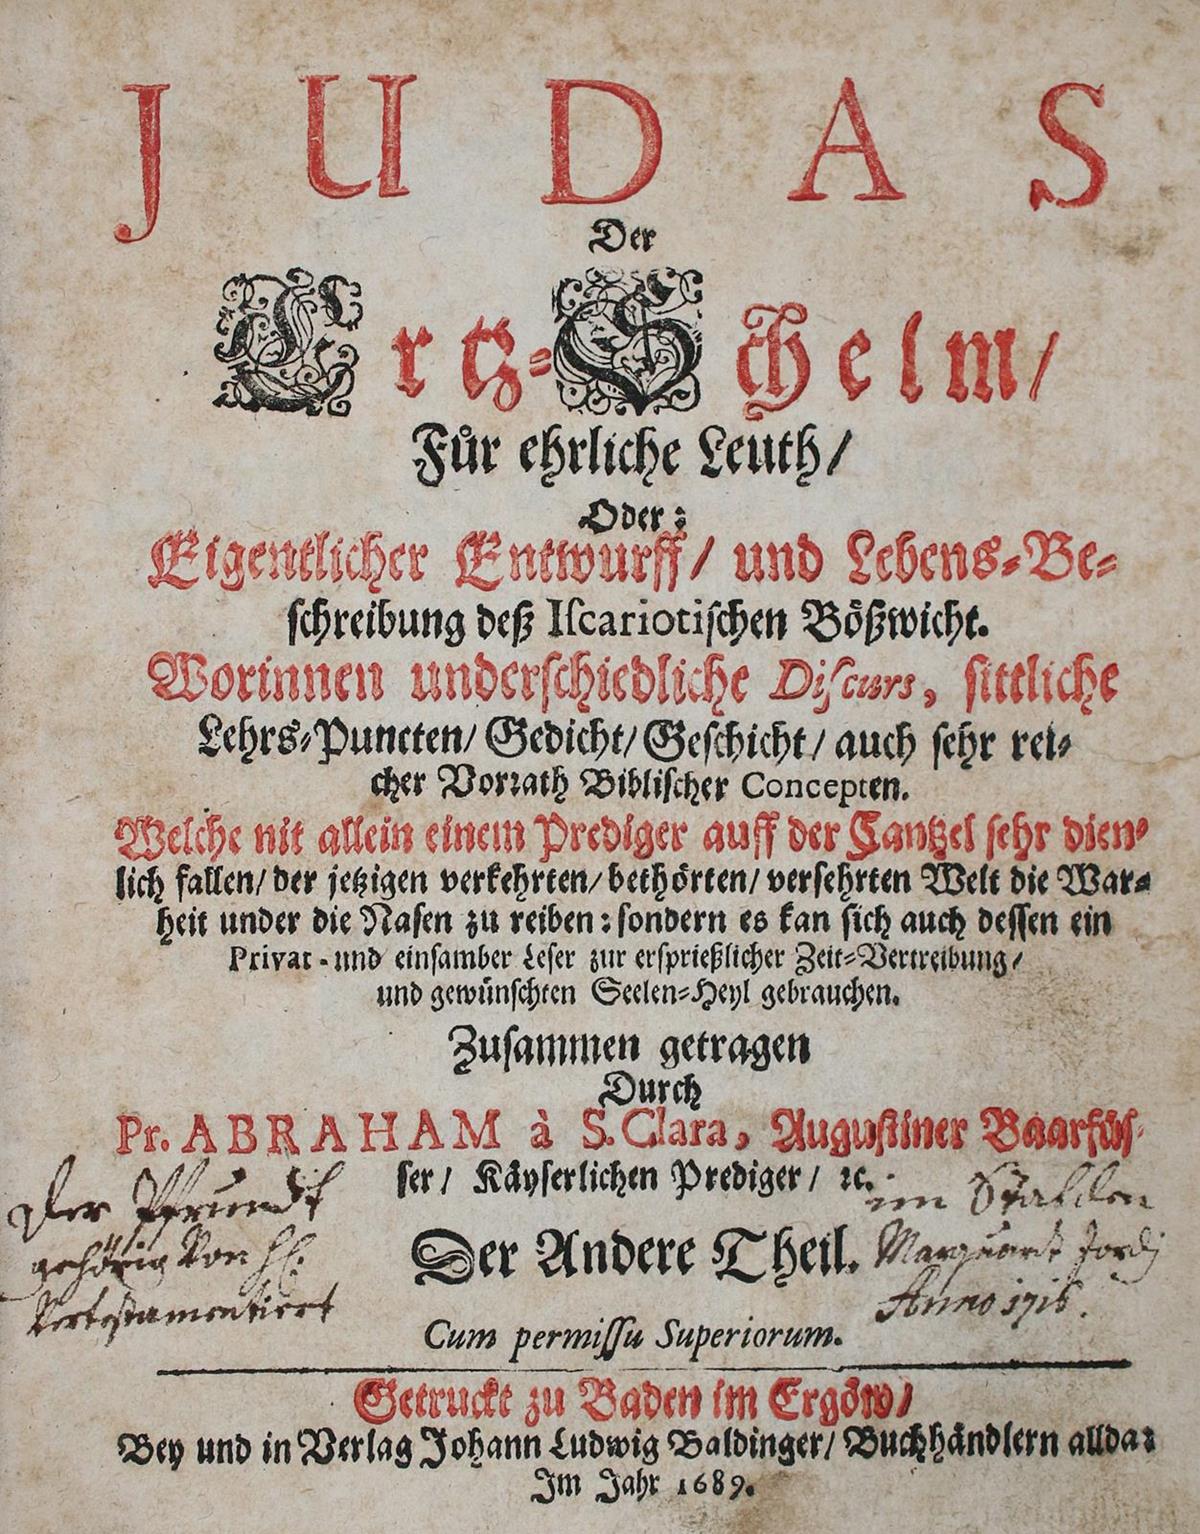 JUDAS
Der
Ertz-Schelm/
Fůr ehrliche Leuth/
Oder:
Eigentlicher Entwurff/ und Lebens-Be-
schreibung deß Iscariotischen Bößwicht.
Worinnen underschiedliche Discurs, sittliche
Lehrs-Puncten/ Gedicht/ Geschicht/ auch sehr rei-
cher Vorrath Biblischer Concepten.
Welche nit allein einem Prediger auff der Cantzel sehr dien-
lich fallen/ der jetzigen verkehrten/ bethörten/ versehrten Welt die War-
heit under die Nasen zu reiben: sondern es kan sich auch dessen ein
Privat- und einsamber Leser zur ersprießlicher Zeit-Vertreibung/
und gewünschten Seelen-Heyl gebrauchen.
Zusammen getragen
Durch
Pr. ABRAHAM à S. Clara, Augustiner Baarfüs-
ser/ Käyserlichen Prediger/ ꝛc.
Der Pfruendt
gehörig Von
Vertestamentiert
Der Andere Theil.
im Stalden
Marquardt Jordj
Anno 1716.
Cum permissu Superiorum.
Getruckt zu Baden im Ergöw/
Bey und in Verlag Johann Ludwig Baldinger/ Buchhändlern allda:
Im Jahr 1689.